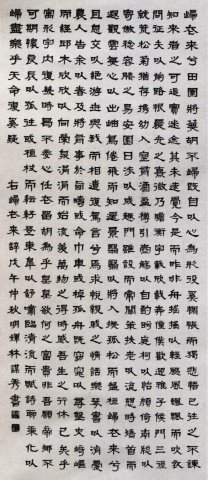 歸去來兮田園將蕪胡不歸既自以心為形役奚惆悵而獨悲悟已往之不諫
知來者之可追實迷途其未遠覺今是而昨非舟遙遙以輕颺風飄飄而吹衣
問征夫以前路恨晨光之熹微乃瞻衡宇載欣載奔僮僕歡迎稚子候門三徑
就荒松菊猶存攜幼入室有酒盈樽引壺觴以自酌眄庭柯以怡顏倚南窗以
寄傲審容膝之易安園日涉以成趣門雖設而常關策扶老以流憩時矯首而
遐觀雲無心以出岫鳥倦飛而知還景翳翳以將入撫孤松而盤桓歸去來兮
請息交以絕遊世與我而相遺復駕言兮焉求悅親戚之情話樂琴書以消憂
農人告余以春及將有事於西疇或命巾車或棹孤舟既窈窕以尋壑亦崎嶇
而經邱木欣欣以向榮泉涓涓而始流羨萬物之得時感吾生之行休已矣乎
寓形宇內復幾時曷不委心任去留胡為乎遑遑欲何之富貴非吾願帝鄉不
可期懷良辰以孤往或植杖而耘耔登東皋以舒嘯臨清流而賦詩聊乘化以
歸盡樂乎天命復奚疑 右歸去來辭戊午仲秋明煇林謀秀書